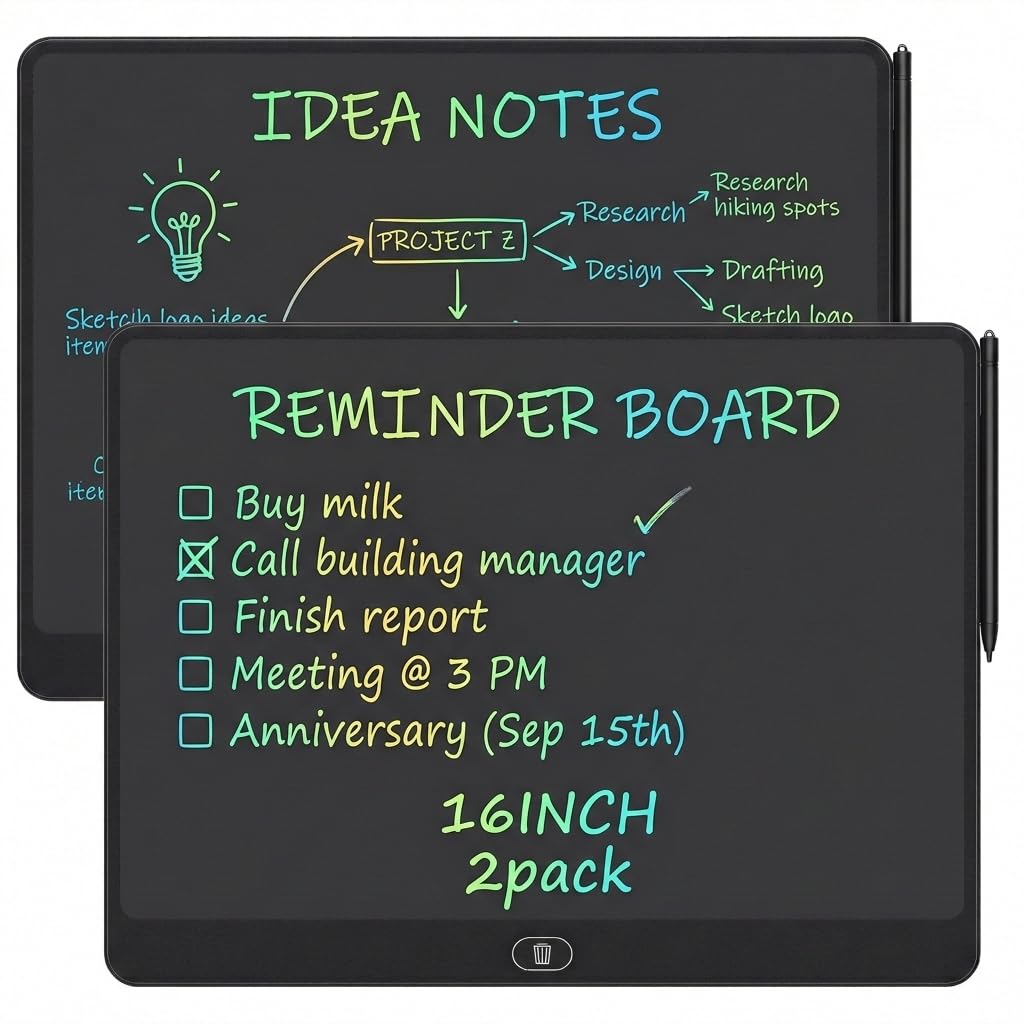 IDEA NOTES
PROJECT Z
Research
Research
hiking spots
Design
Drafting
Sketch logo
logo ideas
REMINDER BOARD
Buy milk
Call building manager
Finish report
Meeting @ 3 PM
Anniversary (Sep 15th)
16INCH
2pack